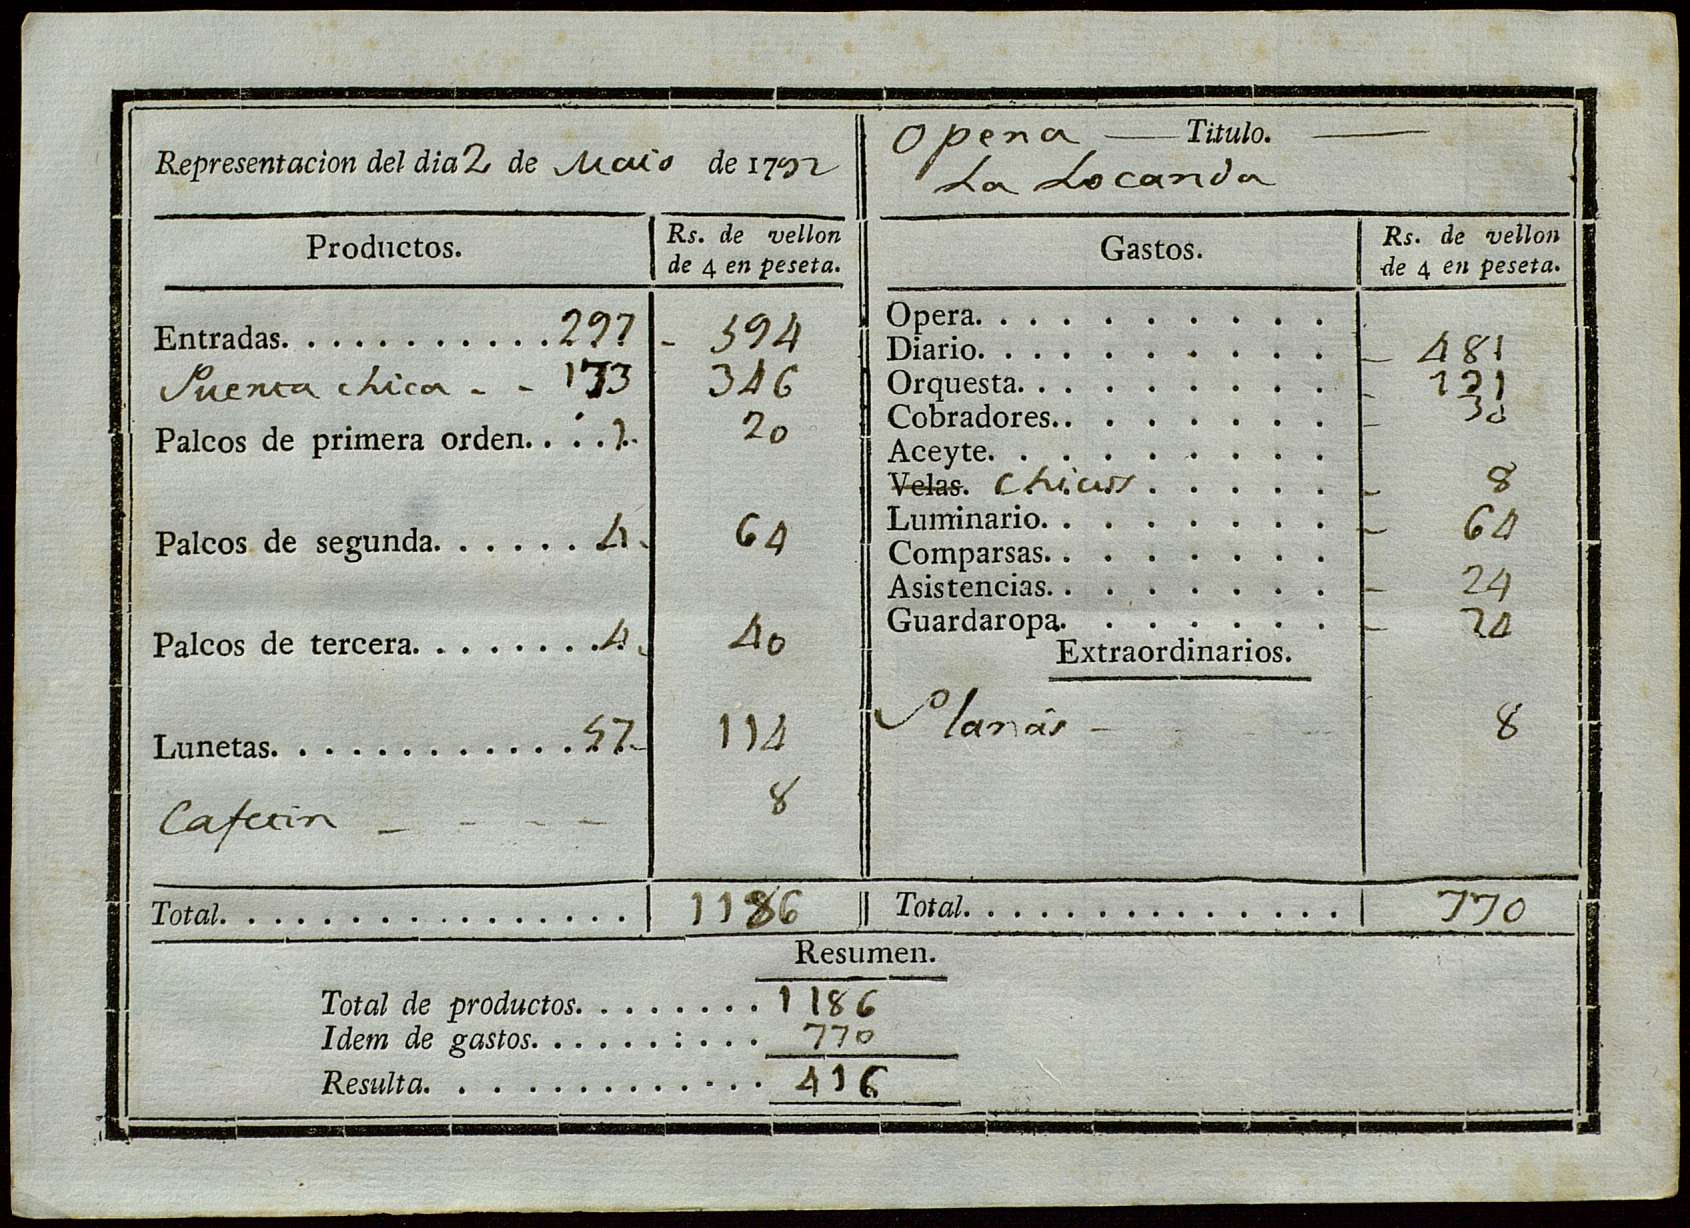 Representacion del dia 2 de Maio de 1792
Opera — Titulo. —
La Locanda
Productos. Rs. de vellon
de 4 en peseta.
Entradas. . . . . . . . . . . . 297 - 594
Puerta chica - - 173 346
Palcos de primera orden. . . . 1. 20
Palcos de segunda. . . . . . 4. 64
Palcos de tercera. . . . . . . . 4. 40
Lunetas. . . . . . . . . . . . . 57- 114
Cafetin - - - - - 8
Total. . . . . . . . . . . . . . . . 1186
Gastos. Rs. de vellon
de 4 en peseta.
Opera. . . . . . . . . .
Diario. . . . . . . . . . - 481
Orquesta. . . . . . . . . - 131
Cobradores. . . . . . . . - 30
Aceyte. . . . . . . . .
Velas. Chicos . . . . . - 8
Luminario. . . . . . . . - 64
Comparsas. . . . . . . .
Asistencias. . . . . . . . - 24
Guardaropa. . . . . . . - 24
Extraordinarios.
Planas - - - - 8
Total. . . . . . . . . . . . . . . 770
Resumen.
Total de productos. . . . . . . . 1186
Idem de gastos. . . . . . : . . . 770
Resulta. . . . . . . . . . . . . 416